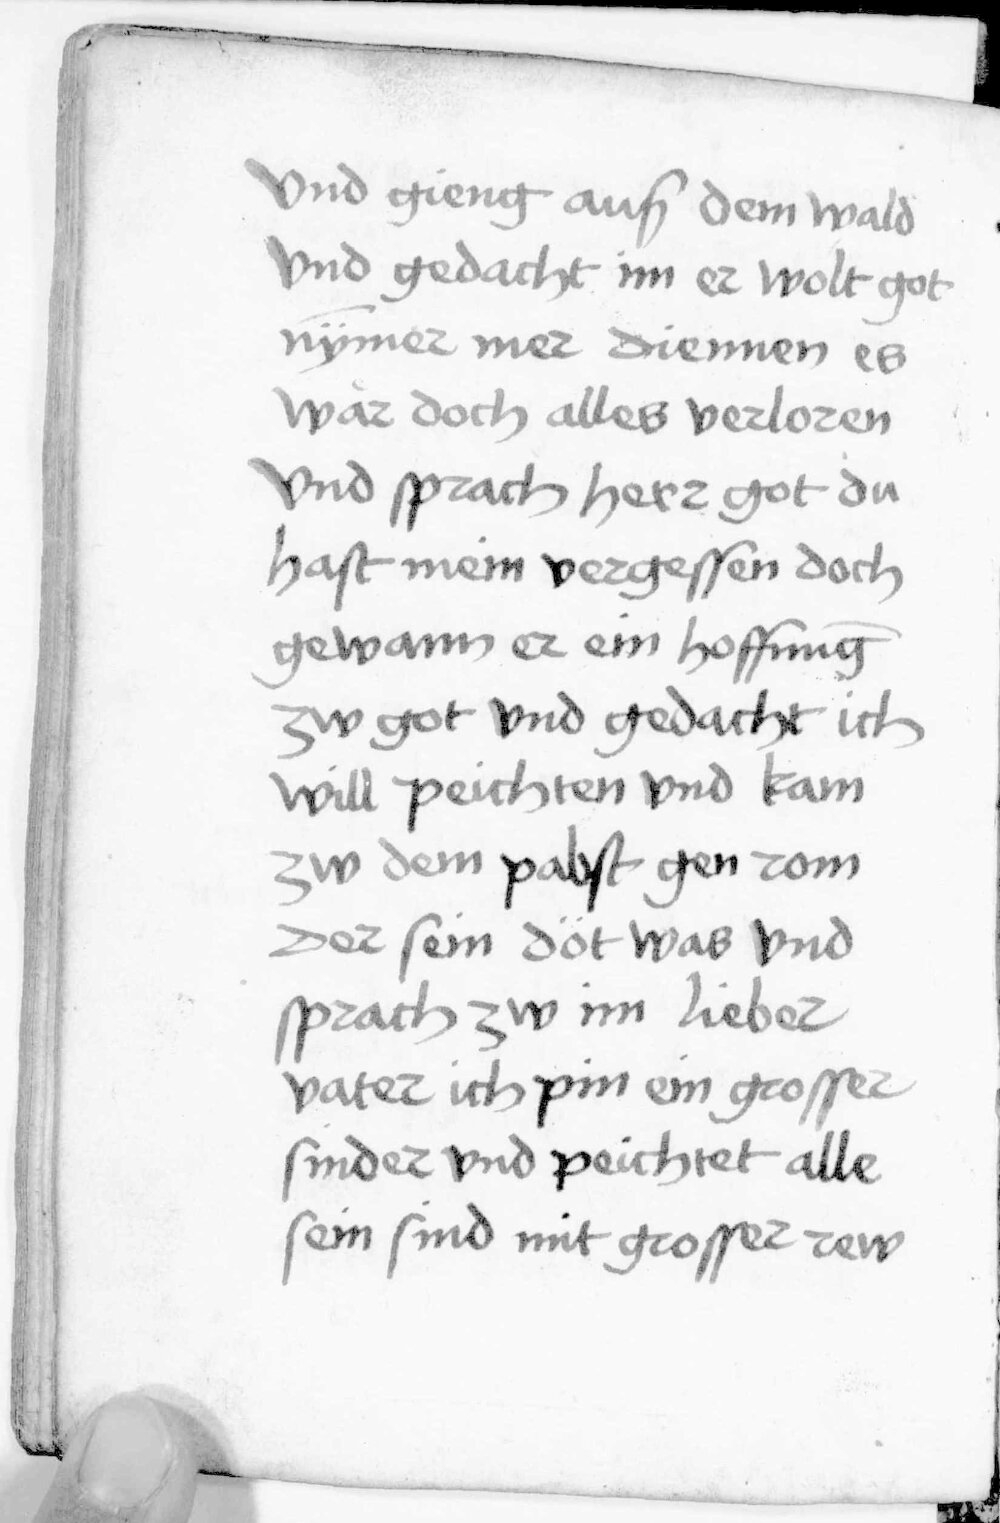 vnd gieng auß dem wald
vnd gedacht im er wolt got
nÿm̄er mer diennen es
wär doch alles verloren
vnd sprach herr got du
hast mein vergessen doch
gewann er ein hoffnūg
zw got vnd gedacht ich
will peichten vnd kam
zw dem pabst gen rom
der sein döt was vnd
sprach zw im lieber
vater ich pin ein grosser
sinder vnd peichtet alle
sein sind mit grosser rew